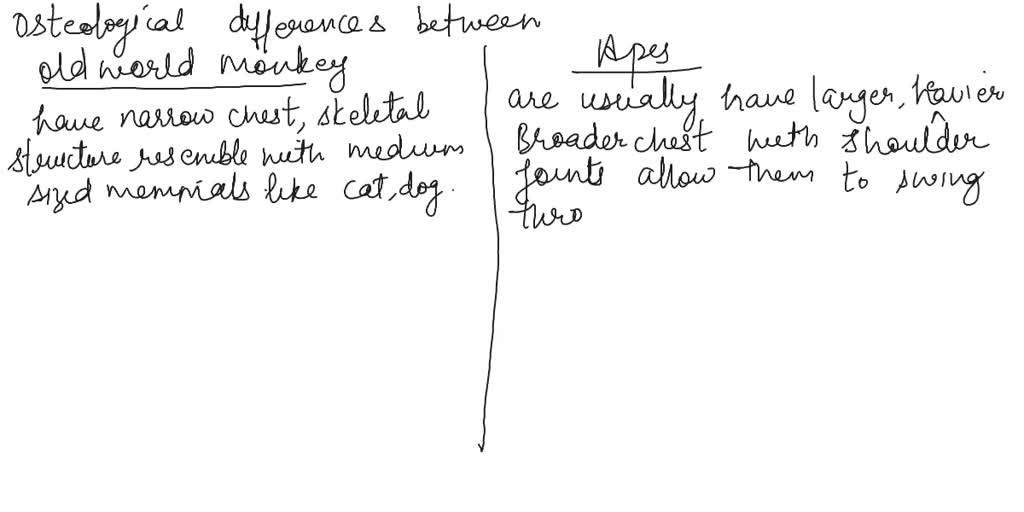 Osteological differences between
old world Monkey
have narrow chest, skeletal
structure resemble with medium
sized memnials like cat, dog.
Apes
are usually have larger, heavier
Broader chest with shoulder
joints allow them to swing
thro